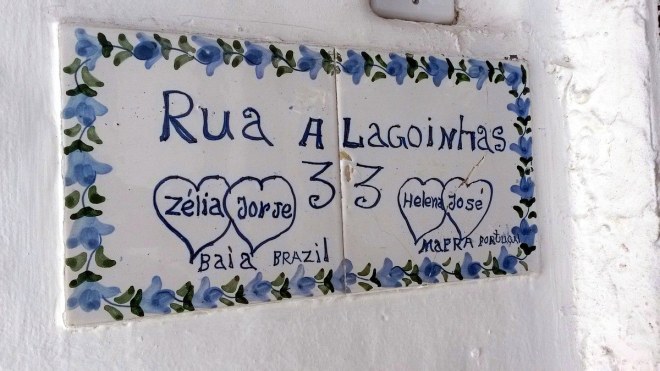 Rua Alagoinhas
33
Zélia Jorje
Helena José
Baia BRAZIL
MAFRA PORTUGAL